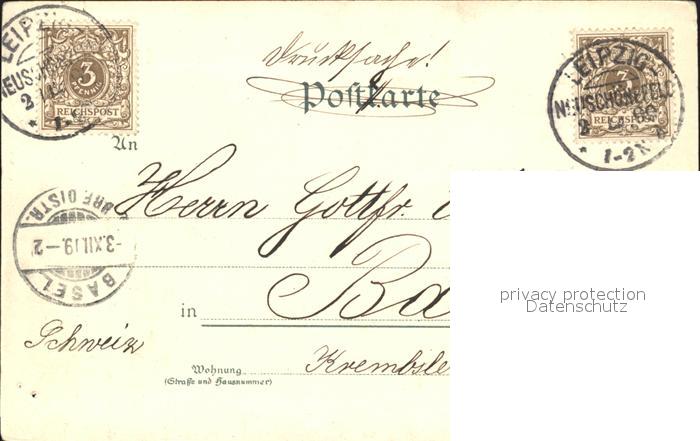 LEIPZIG
NEUSCHÖNEFELD
1-2 N
3
PFENNIG
REICHSPOST
Drucksache!
Postkarte
LEIPZIG
NEUSCHÖNEFELD
1-2 N
3
REICHSPOST
An
Herrn Gottfr.
BRF. DISTR.
-3.XII.19.-2
BASEL
in Ba
Schweiz
Wohnung
(Straße und Hausnummer)
Krembsle
privacy protection
Datenschutz